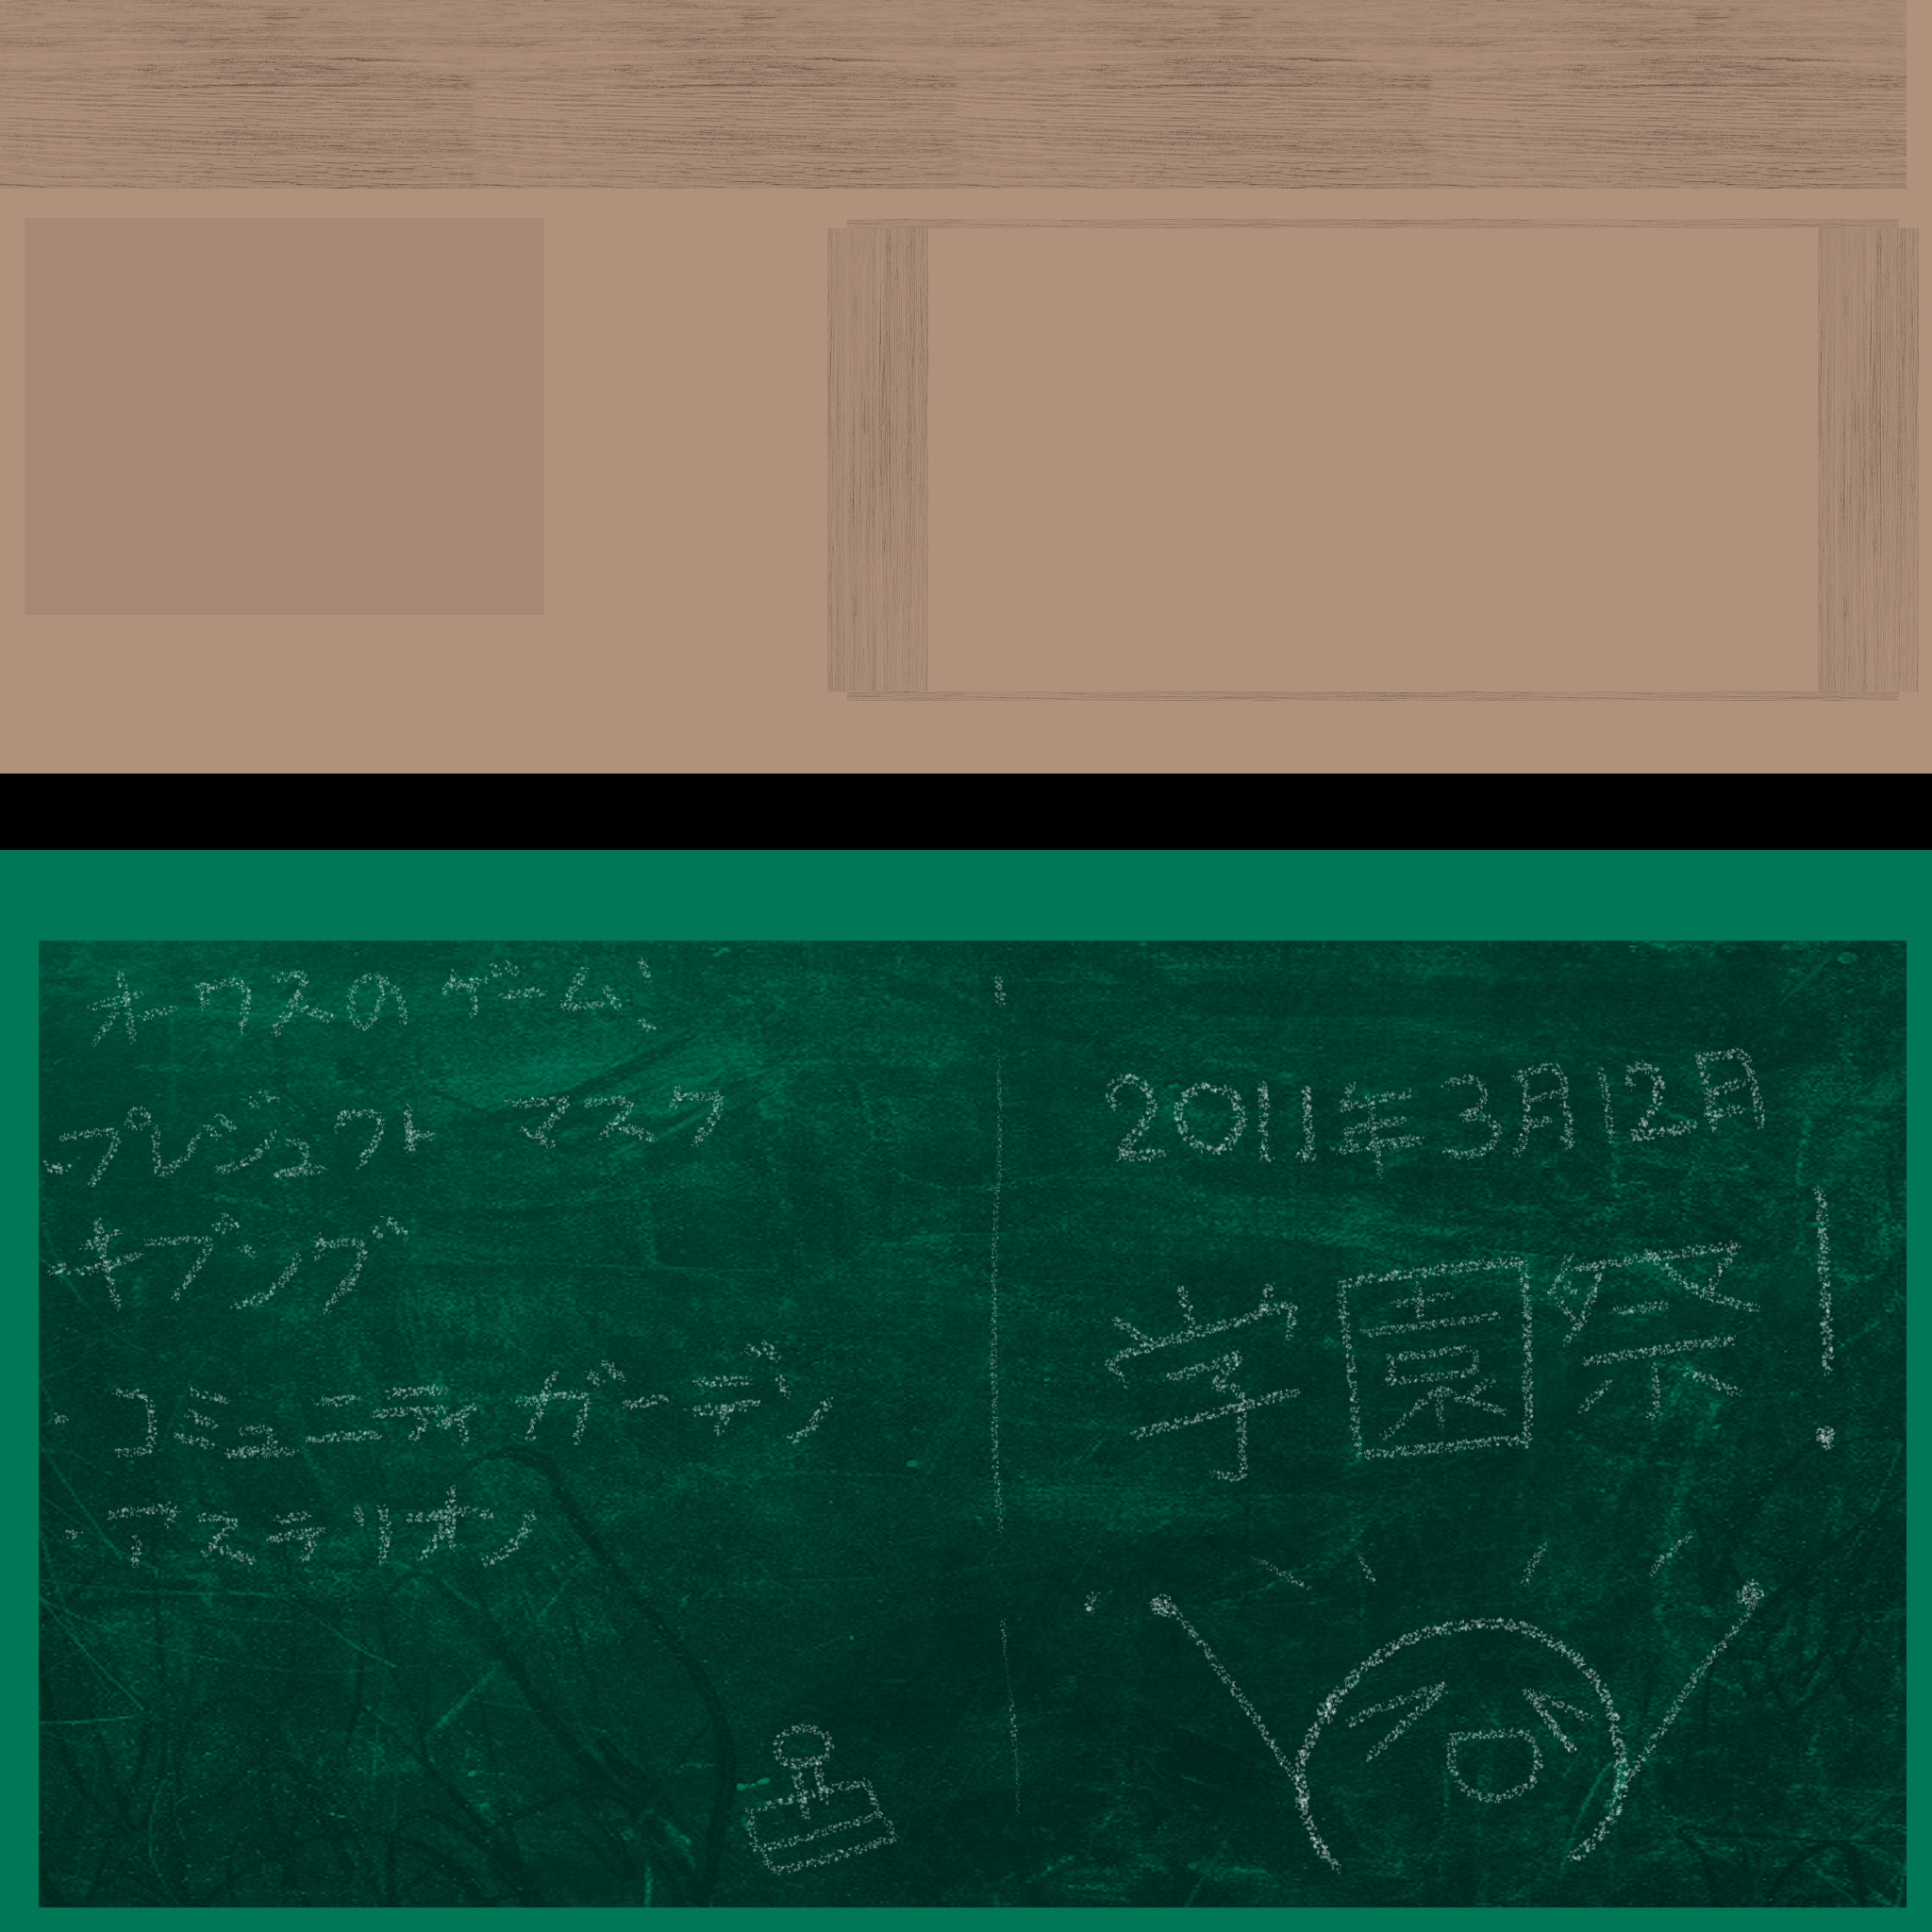 オークスのゲーム!
・プレジェクト マスク
・キブング
・コミュニティ ガーデン
・アステリオン
2011年3月12日
学園祭!